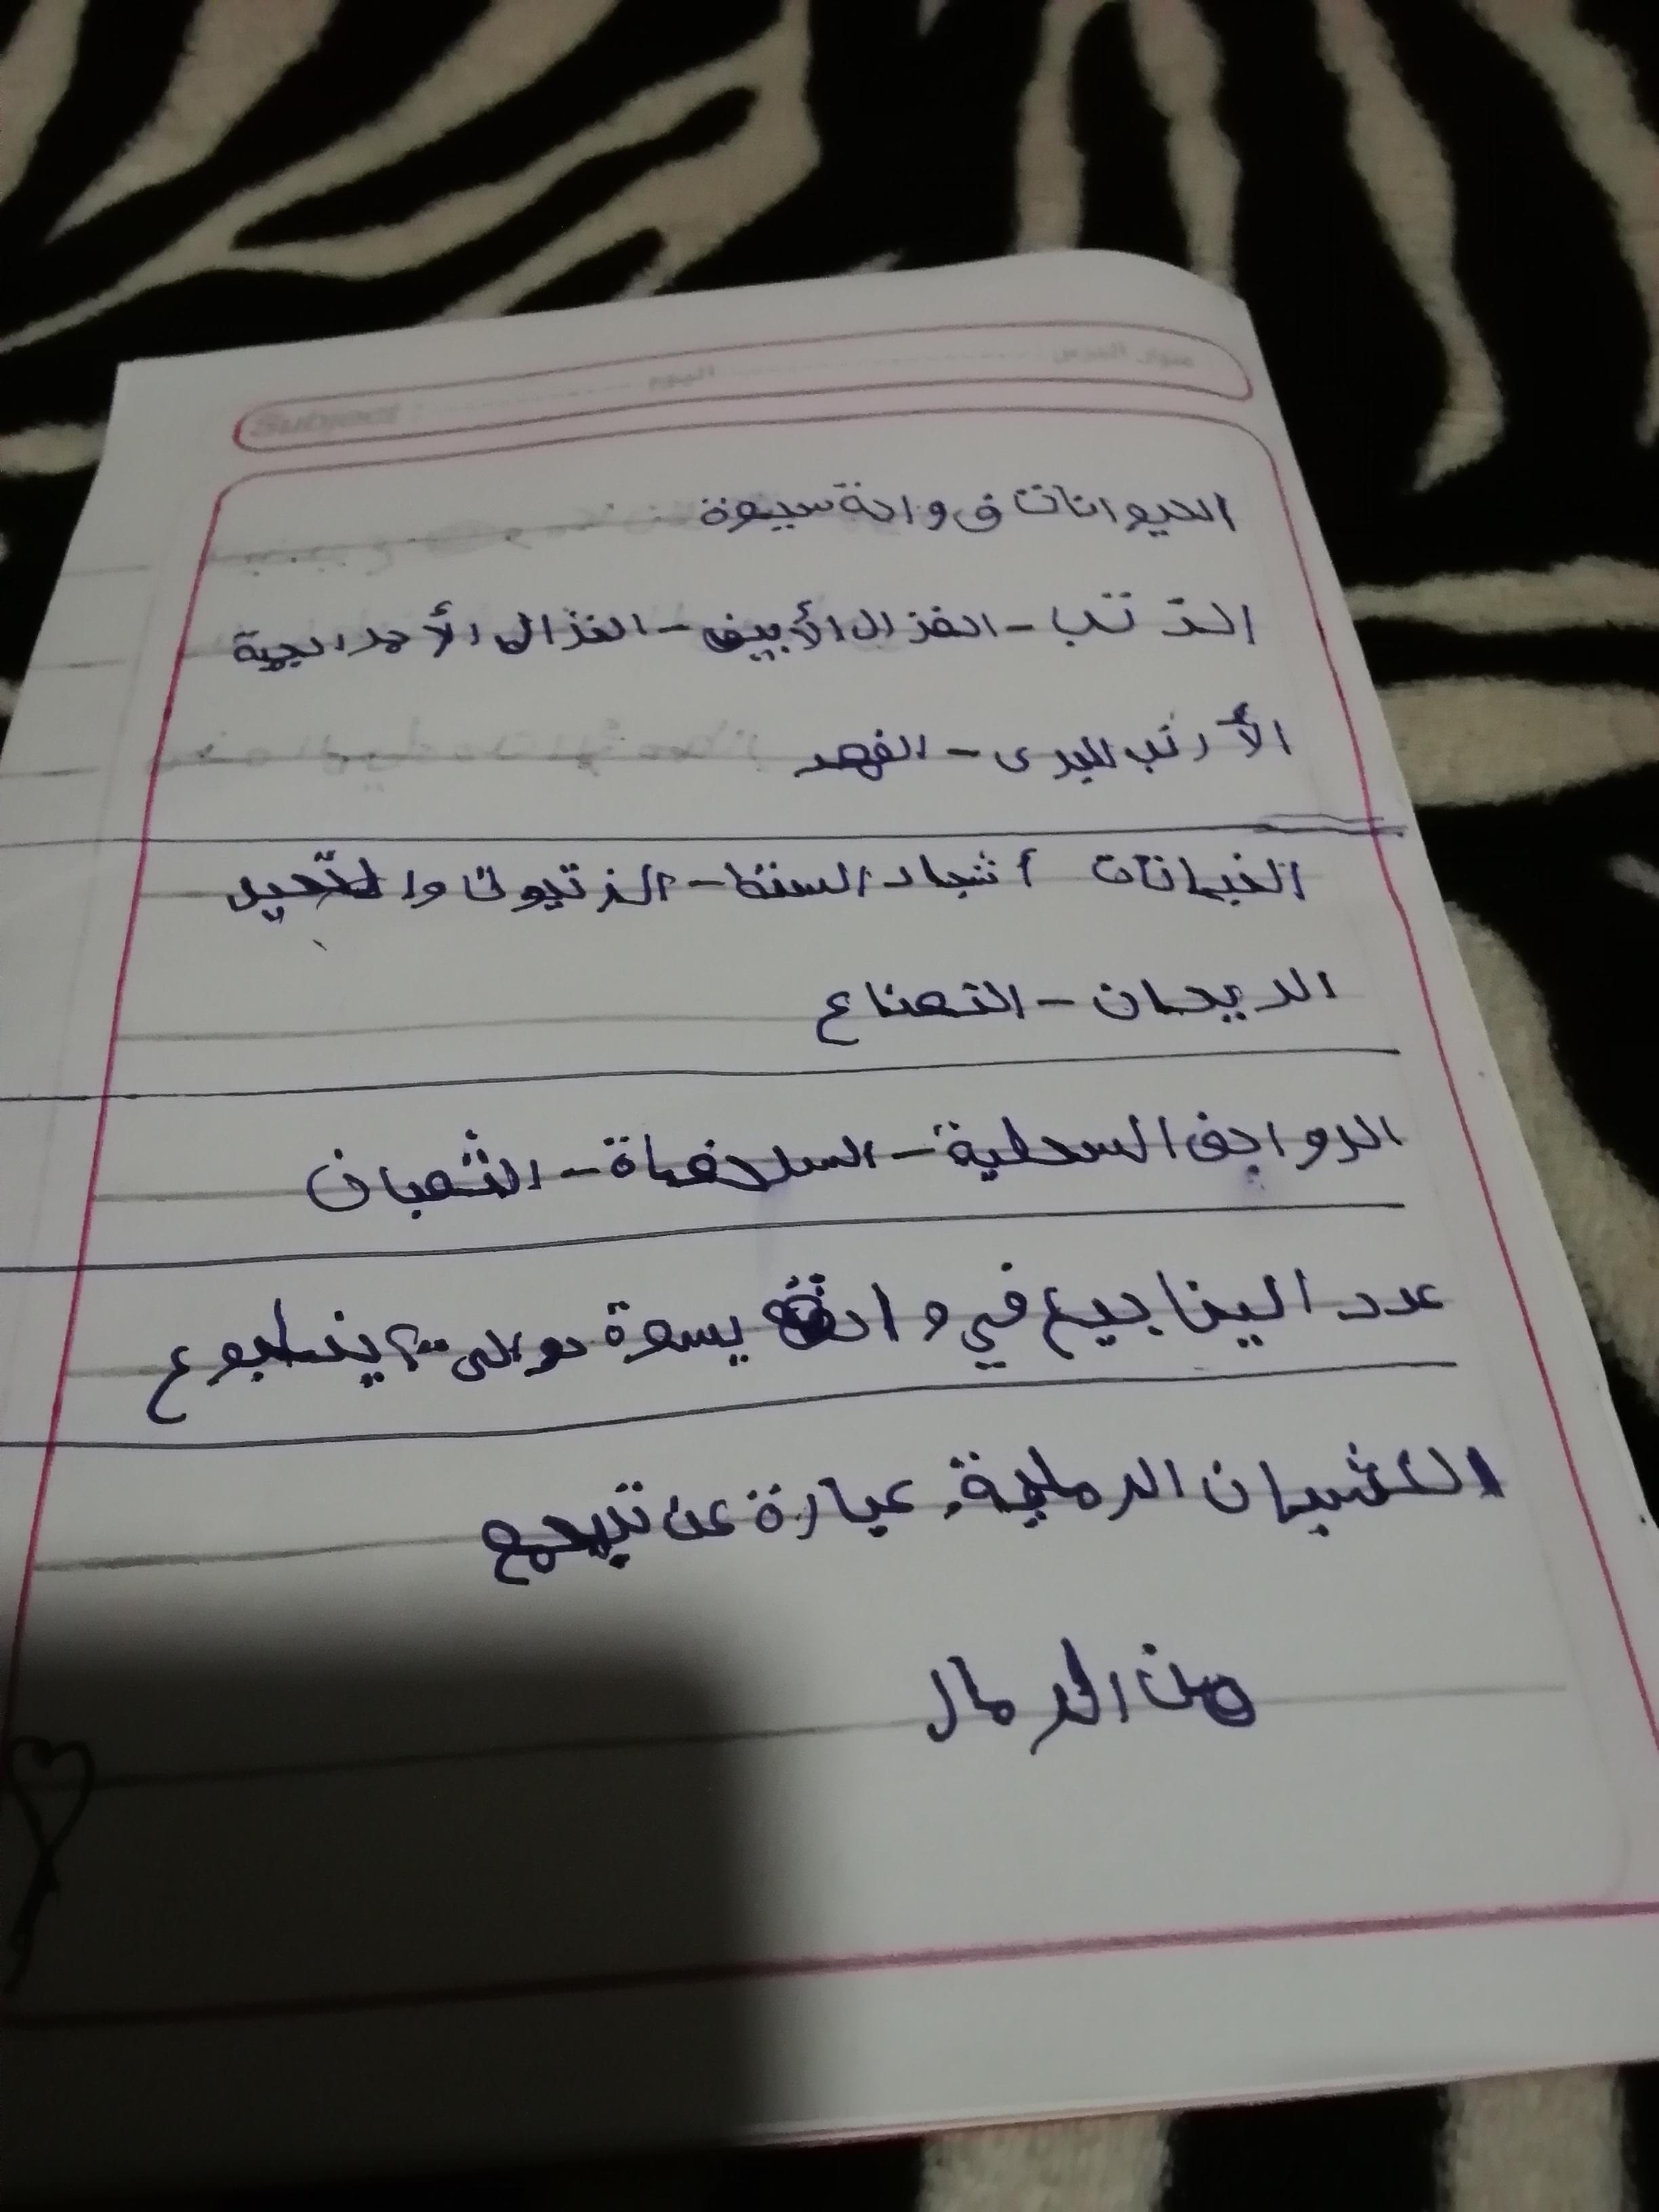 Subject اليوم عنوان الدرس
الحيوانات فى واحة سيوة
الذئب - الغزال الأبيض - الغزال الأحمر
الأرنب البرى - الفهر
النباتات أشجار السنط - الزتيون
الريحان - النعناع
الزواحف السحلية - السلحفاة - الثعبان
عدد الينابيع في يسوة حوالى ٢٠٠ ينبوع
الكثبان الرملية. عبارة عن تجمع
من الرمال